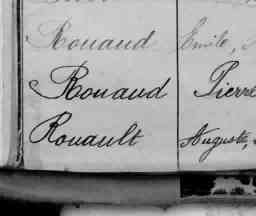 Rouaud Emile,
Rouaud Pierre
Rouault Auguste,